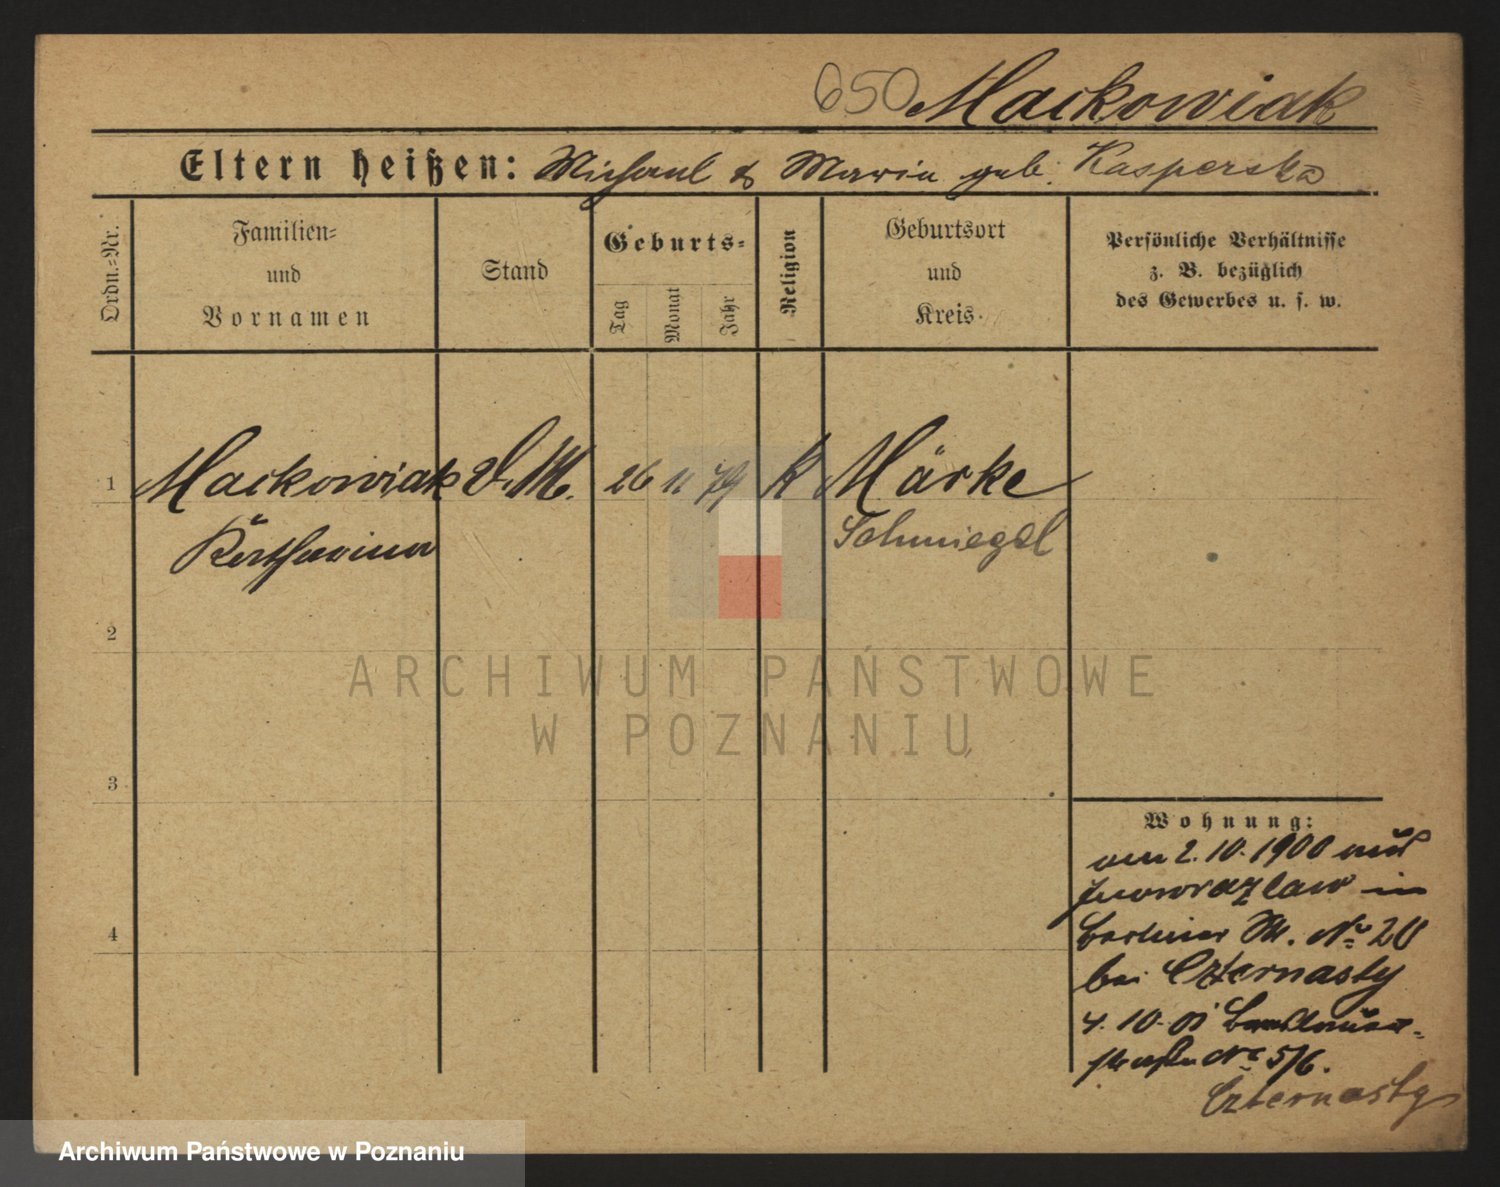 650 Mackowiak
Eltern heißen: Michael & Maria geb. Kasperska
Ordn.-Nr.
Familien-
und
Vornamen
Stand
Geburts-
Tag
Monat
Jahr
Religion
Geburtsort
und
Kreis.
Persönliche Verhältnisse
z. B. bezüglich
des Gewerbes u. s. w.
1 Mackowiak D. M. 26 11 79 K Märke
Katharina Schmiegel
2
3
4
Wohnung:
am 2.10.1900 aus
Inowrazlaw in
Berliner St. No 20
bei Czternasty
4.10.01
straße No 5/6.
Czternasty
ARCHIWUM PAŃSTWOWE
W POZNANIU
Archiwum Państwowe w Poznaniu